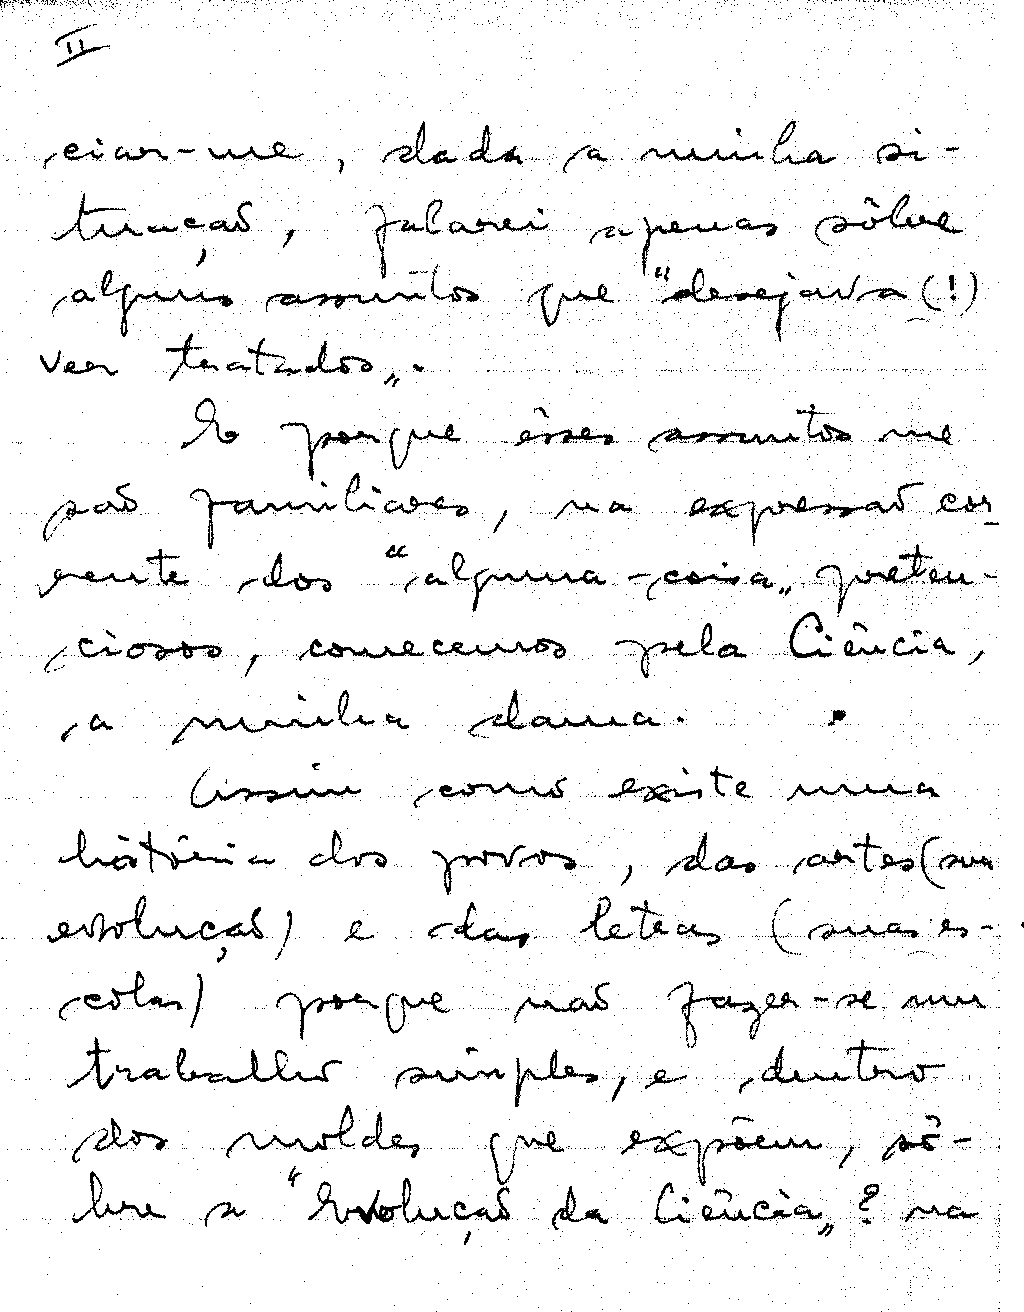 II
ciar-me, dada a minha si-
tuação, falarei apenas sôbre
alguns assuntos que "desejava(!)
ver tratados".
E porque êsses assuntos me
são familiares, na expressão cor-
rente dos "alguma-coisa" preten-
ciosos, comecemos pela Ciência,
a minha dama.
Assim como existe uma
história dos povos, das artes (sua
evolução) e das letras (suas es-
colas) porque não fazer-se um
trabalho simples, e dentro
dos moldes que expõem, sô-
bre a "Evolução da Ciência"? na